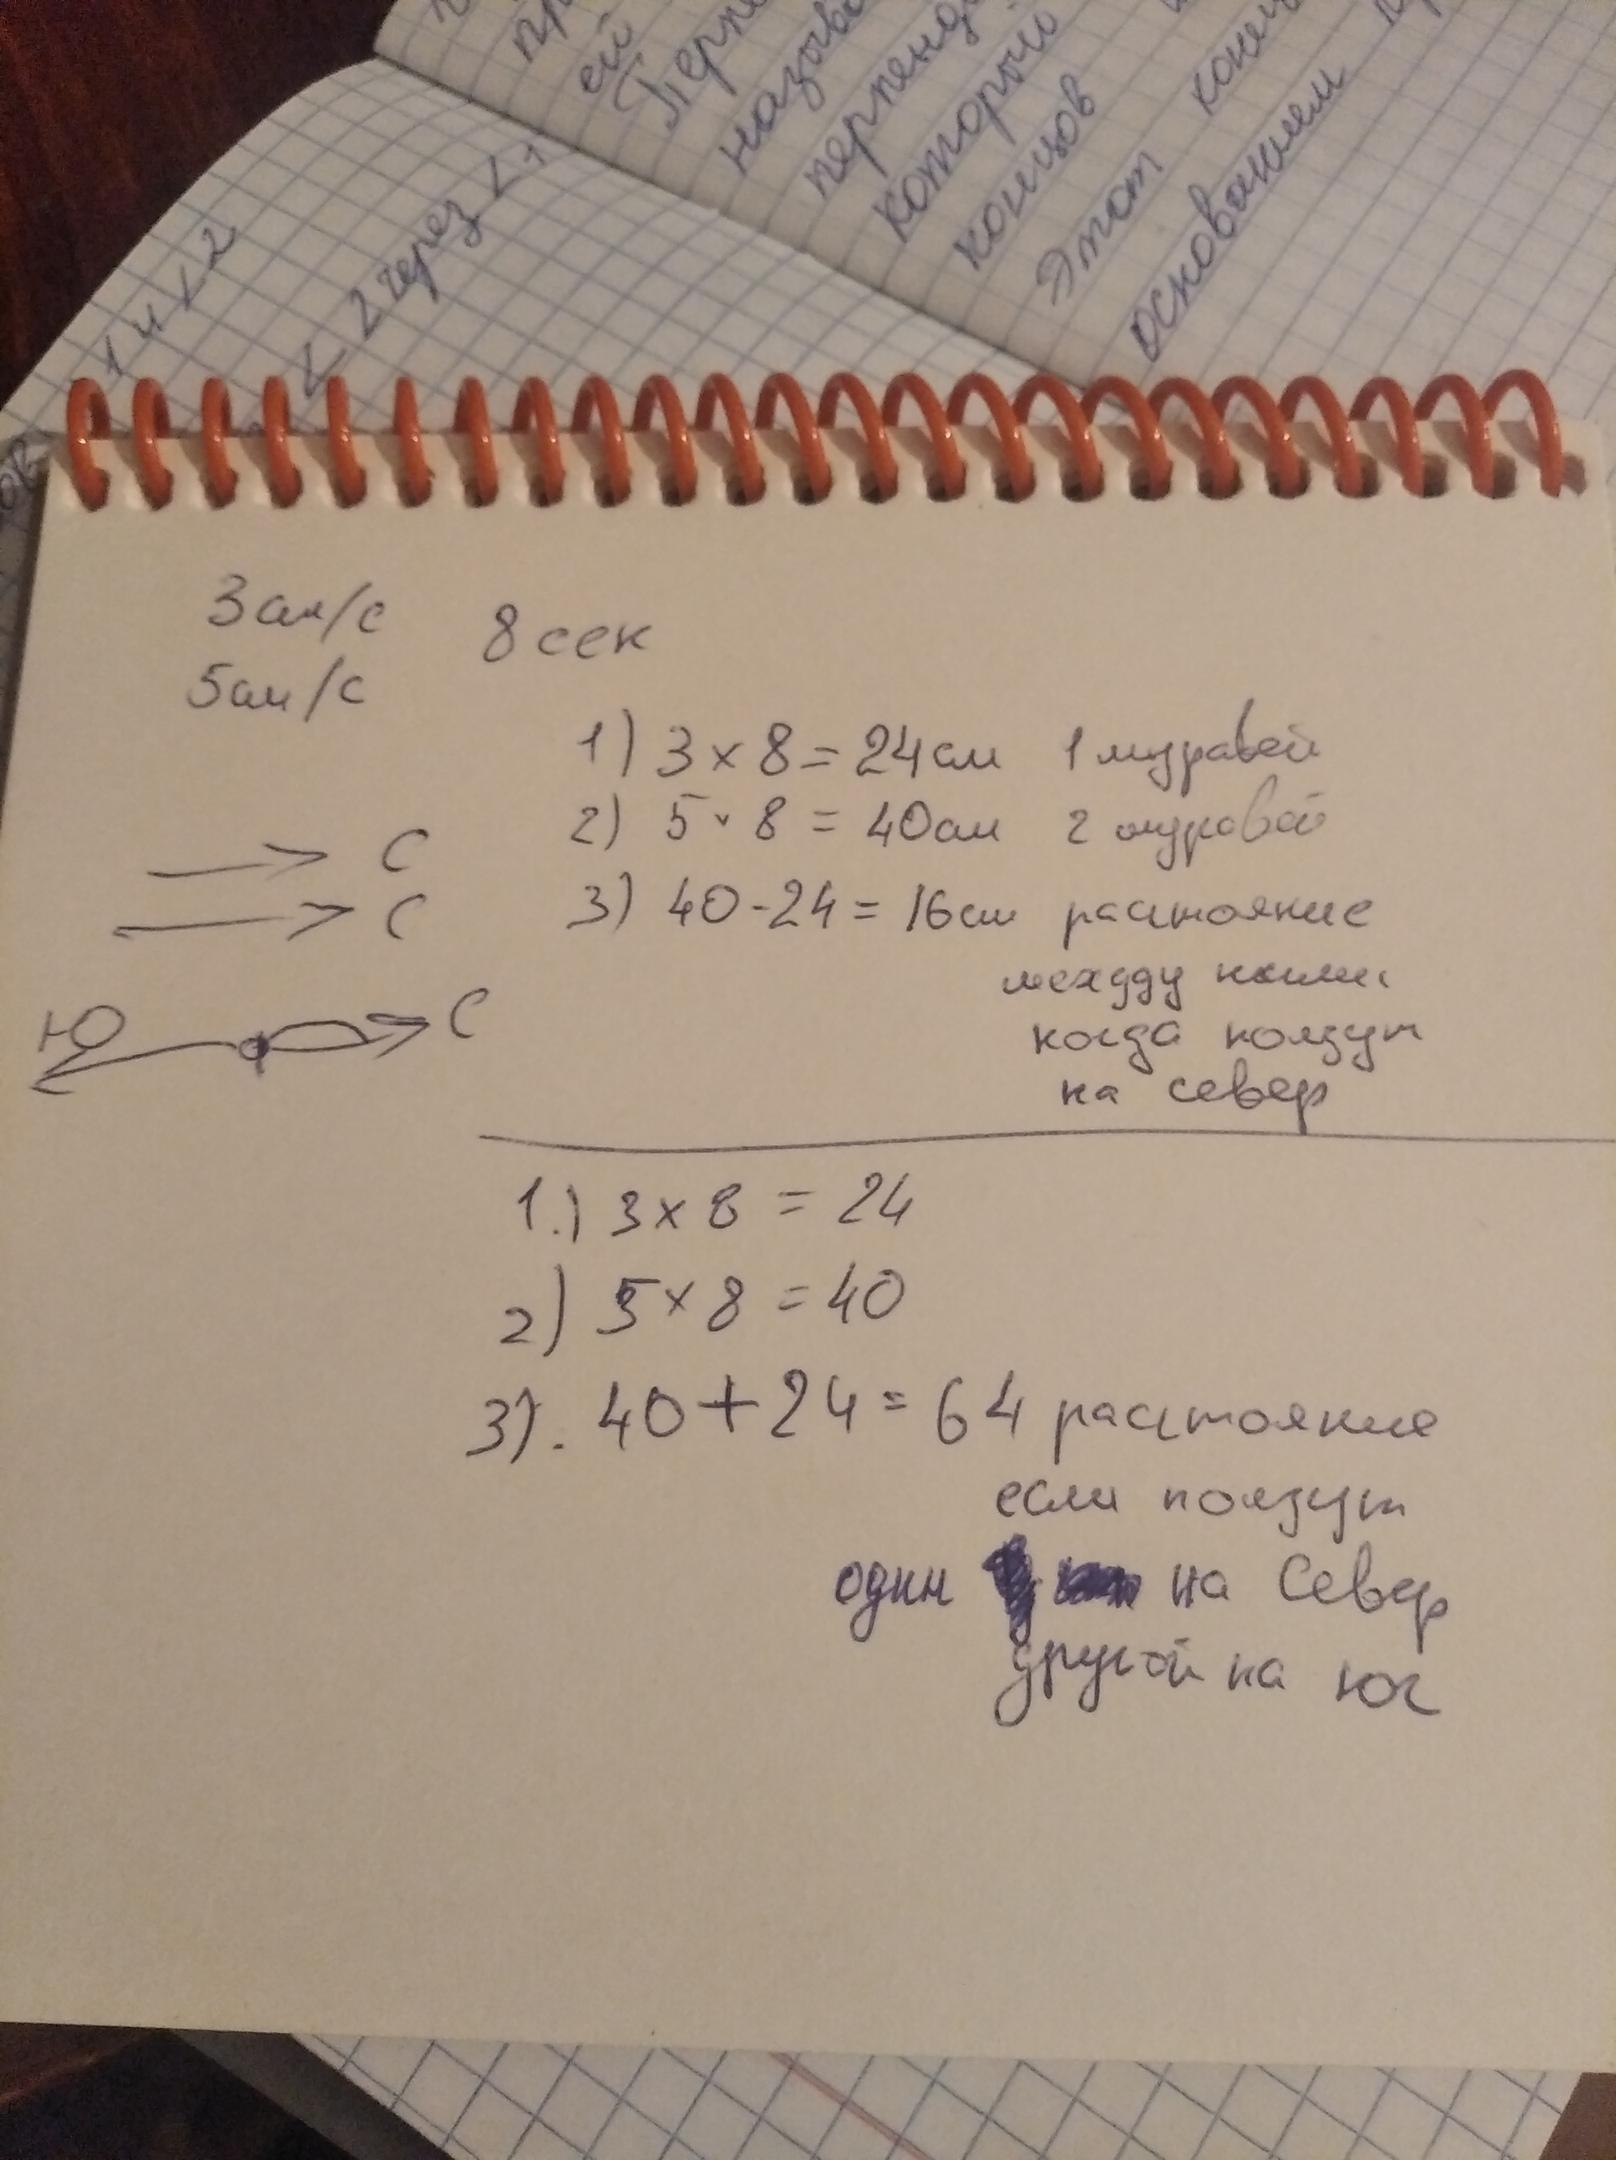 ей
Перпе
назыв
перпенд
который
концов
Этот конец
основанием
1 и ∠2
∠2 через ∠1
3 см/с
8 сек
5 см/с
1) 3 × 8 = 24 см 1 муравей
2) 5 · 8 = 40 см 2 муравей
3) 40 - 24 = 16 см растояние
между ними
когда ползут
на север
С
С
Ю С
1.) 3 × 8 = 24
2) 5 × 8 = 40
3). 40 + 24 = 64 растояние
если ползут
один на Север
другой на юг